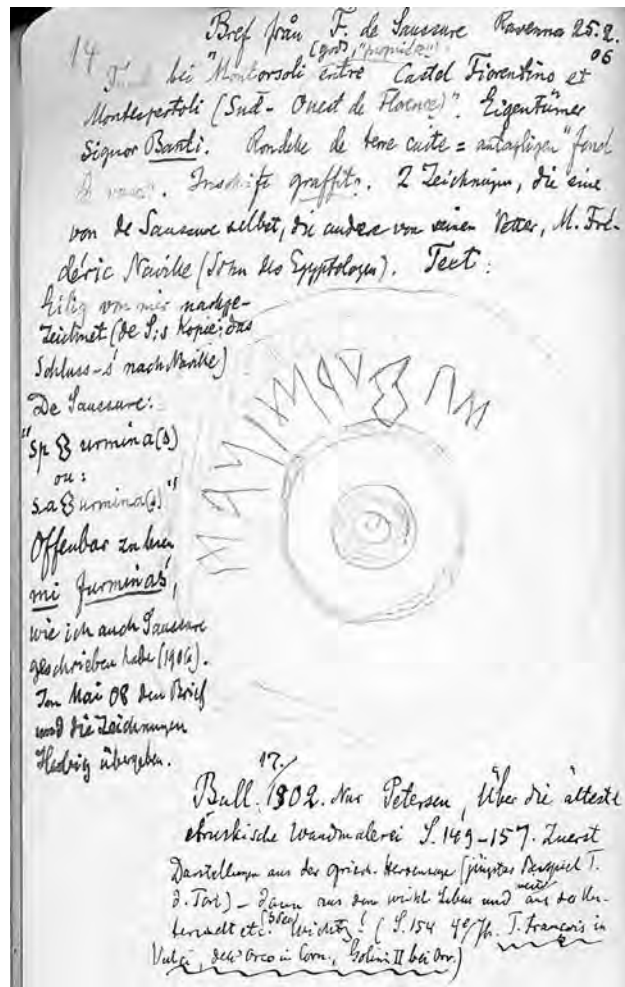 14
Bref från F. de Saussure Ravenna 25.2.
06
bei "Montorsoli entre Castel Fiorentino et
Montespertoli (Sud-Ouest de Florence)". Eigentümer
Signor Banti. Rondelle de terre cuite = antagligen "fond
de vase". Inschrift graffito. 2 Zeichnungen, die eine
von de Saussure selbst, die andere von seinem Vetter, M. Fré-
déric Naville (Sohn des Egyptologen). Text:
Eilig von mir nachge-
zeichnet (de S:s Kopie; das
Schluss-ś nach Naville)
De Saussure:
"sp 8 urmina(s)
ou:
sa 8 urmina(s)"
Offenbar zu lesen
mi furminaś,
wie ich auch Saussure
geschrieben habe (1906).
Im Mai 08 den Brief
und die Zeichnungen
Herbig übergeben.
17.
Bull. 1902. Nur Petersen, Über die älteste
etruskische Wandmalerei S. 149-157. Zuerst
Darstellungen aus der griech. Heroensage (jüngstes Beispiel T.
d. Tori) - dann aus dem wirkl. Leben und aus der Un-
terwelt etc. Wichtig! (S. 154 T. François in
Vulci, dell'Orco in Corn., Golini II bei Orv.)